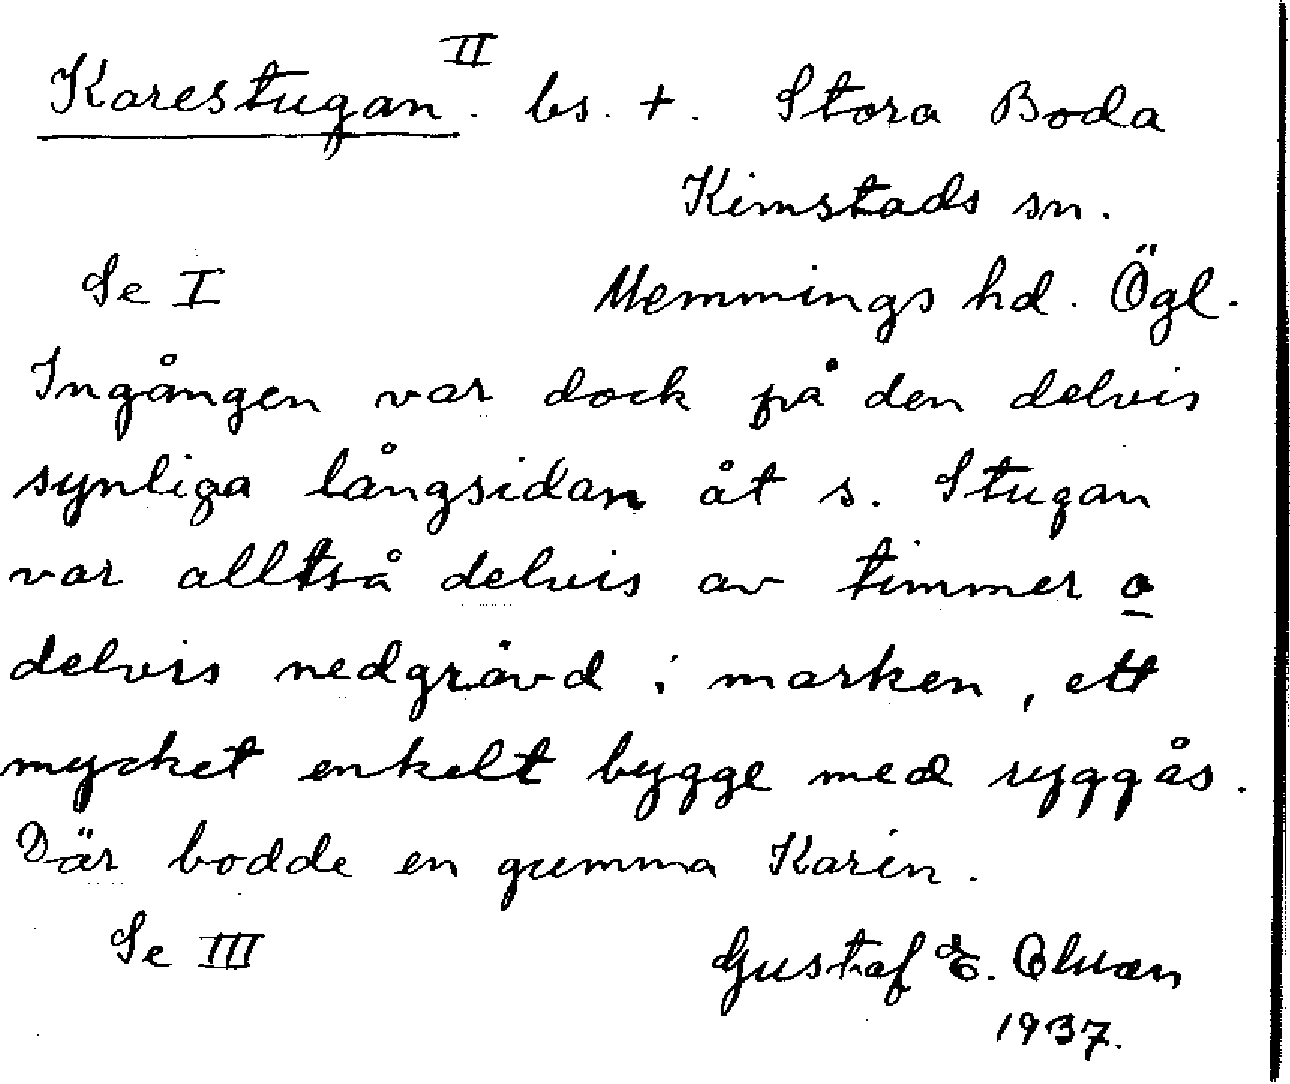 Karestugan II. bs. +. Stora Boda
Kimstads sn.
Se I Memmings hd. Ögl.
Ingången var dock på den delvis
synliga långsidan åt s. Stugan
var alltså delvis av timmer o
delvis nedgrävd i marken, ett
mycket enkelt bygge med ryggås.
Där bodde en gumma Karin.
Se III Gustaf E.
1937.